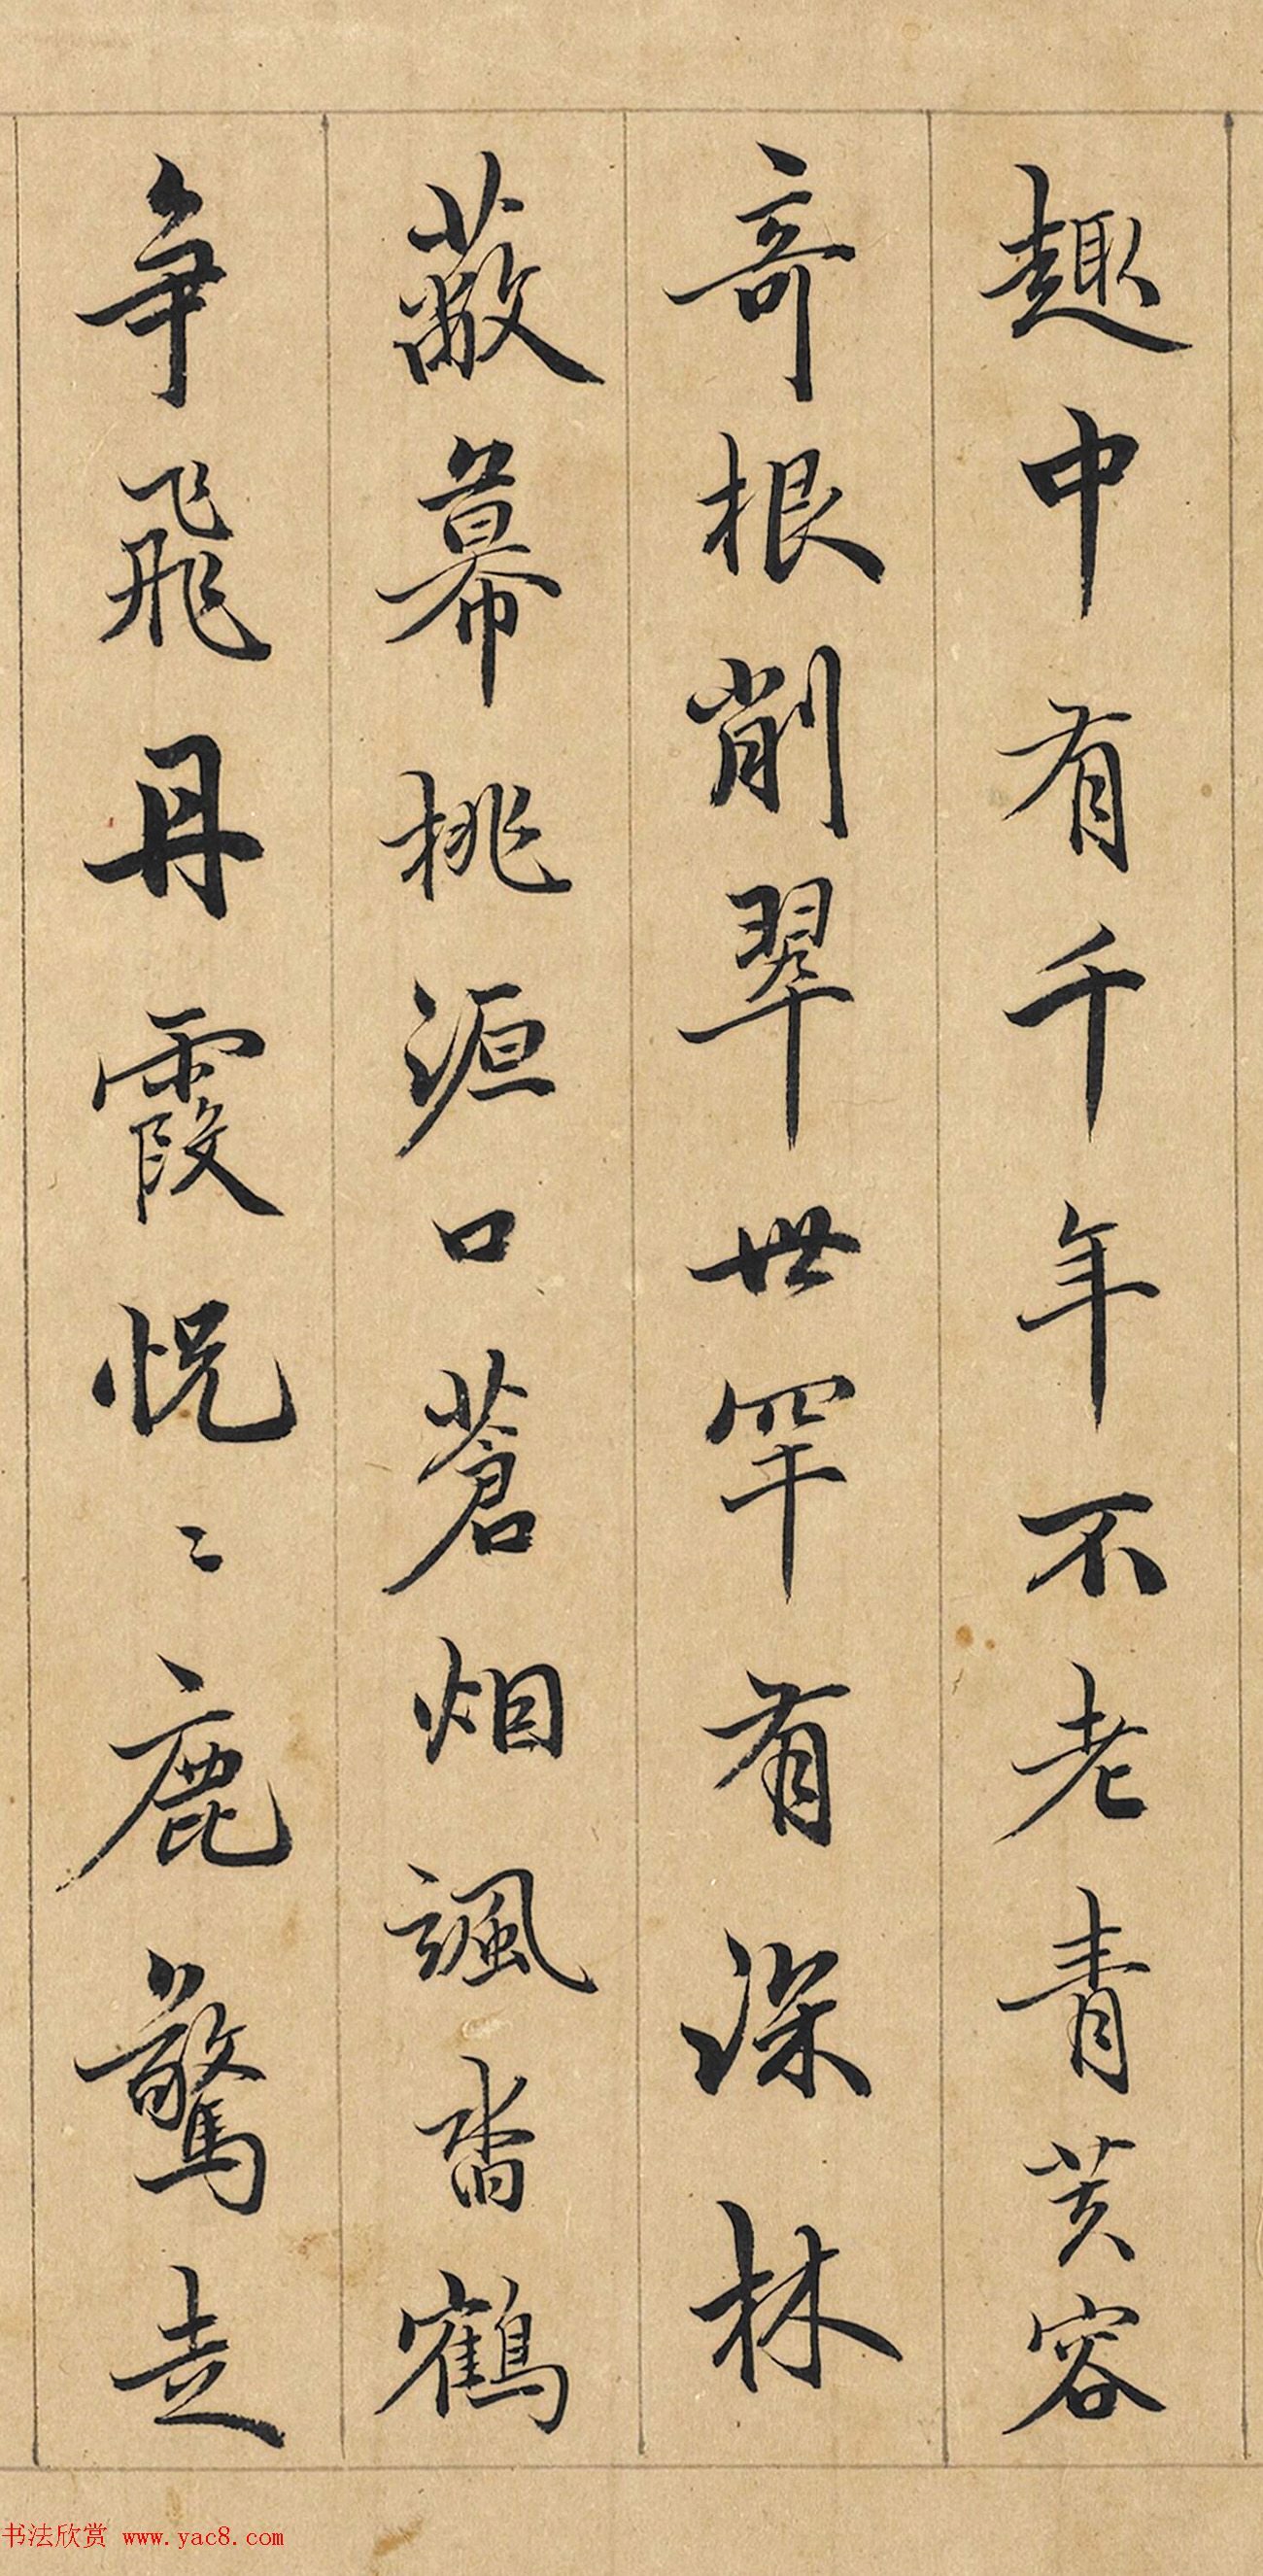 趣中有千年不老青芙容
奇根削翠世罕有深林
蔽幕桃源口蒼烟颯畓鶴
争飛丹霞恍〻鹿驚走
书法欣赏 www.yac8.com